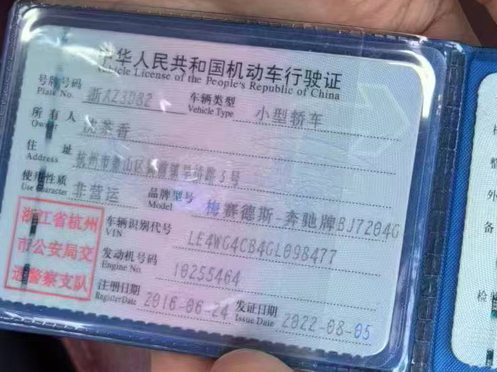 中华人民共和国机动车行驶证
Vehicle License of the People's Republic of China
号牌号码 浙AZ3D82 车辆类型 小型轿车
Plate No. Vehicle Type
所有人
Owner
住址 杭州市萧山区 3号
Address
使用性质 非营运 品牌型号 梅赛德斯-奔驰牌BJ7204G
Use Character Model
车辆识别代号 LE4WG4CB4GL098477
VIN
发动机号码 10255464
Engine No.
注册日期 2016-06-24 发证日期 2022-08-05
Register Date Issue Date
浙江省杭州
市公安局交
通警察支队
检